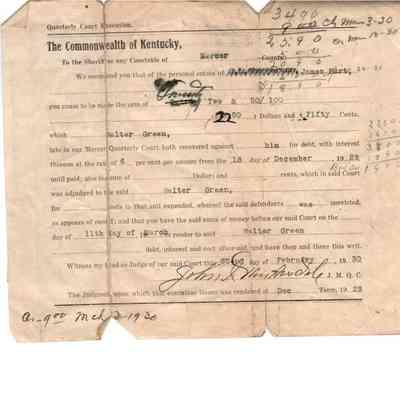 Quarterly Court Execution.
3490
9.00 Ch Mar 3-30
The Commonwealth of Kentucky,
2590
To the Sheriff or any Constable of Mercer County:
We command you that of the personal estate of James Hurt,
you cause to be made the sum of Twenty Two & 50/100
22 50 ) Dollars and Fifty Cents,
which Walter Green,
late in our Mercer Quarterly Court hath recovered against him for debt, with interest
thereon at the rate of 6 per cent per annum from the 18 day of December 19
until paid; also the sum of Dollars and cents, which in said Court
was adjudged to the said Walter Green,
for costs in that suit expended, whereof the said defendants was convicted,
as appears of record; and that you have the said sums of money before our said Court on the
day of 11th day of March to render to said Walter Green
debt, interest and cost aforesaid, and have then and there this writ.
Witness my hand as Judge of our said Court this day of February 19 30
J. M. Q. C.
The Judgment, upon which this execution issues was rendered at Dec Term, 19
9.00 Mch 3-1930